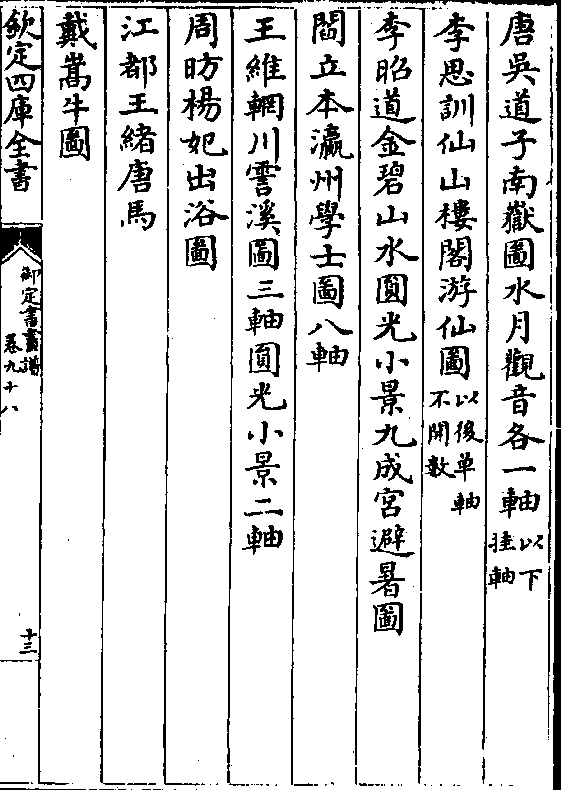 唐吳道子南嶽圖水月觀音各一軸以下挂軸
李思訓仙山樓閣游仙圖以後单軸不開數
李昭道金碧山水圓光小景九成宮避暑圖
閻立本瀛州學士圖八軸
王維輞川霅溪圖三軸圓光小景二軸
周昉楊妃出浴圖
江都王緒唐馬
戴嵩牛圖
欽定四庫全書
御定書畫譜
卷九十八
十三